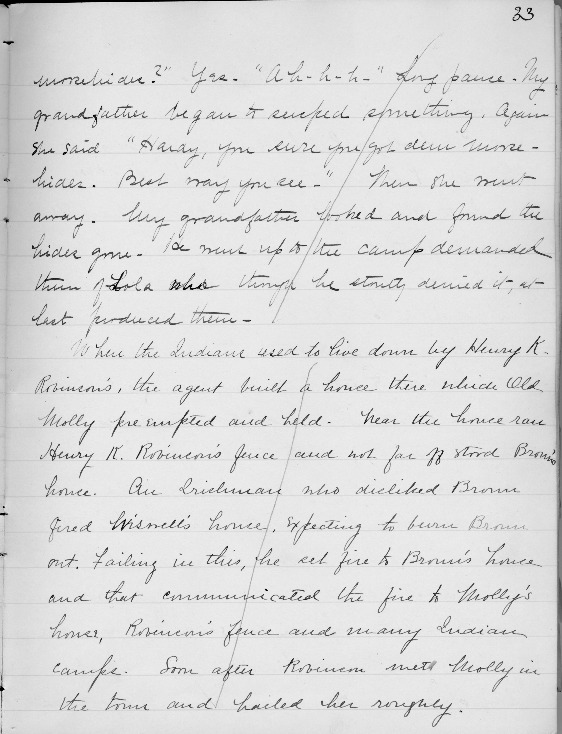 33
moosehides?" Yes. "Ah-h-h-" Long pause. My
grandfather began to suspect something. Again
she said "Haray, you sure you got dem moose-
hides. Best way you see-" Then she went
away. My grandfather looked and found the
hides gone. He went up to the camp demanded
them of Lola who though he stoutly denied it, at
last produced them-
When the Indians used to live down by Henry K.
Robinson's, the agent built a house there which Old
Molly preempted and held. Near the house ran
Henry K. Robinson's fence and not far off stood Brown's
house. An Irishman who disliked Brown
fired Wiswell's house, expecting to burn Brown
out. Failing in this, he set fire to Brown's house
and that communicated the fire to Molly's
house, Robinson's fence and many Indian
camps. Soon after Robinson met Molly in
the town and hailed her roughly.